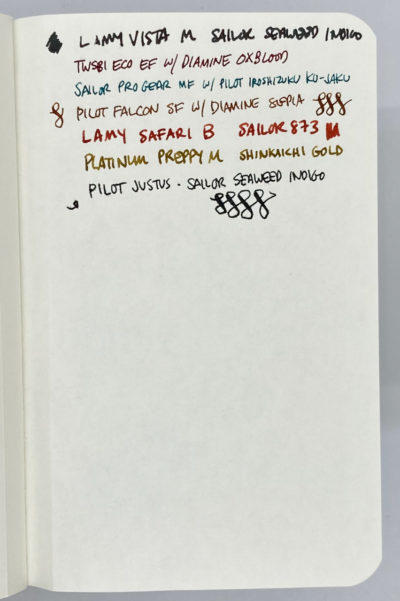 LAMY VISTA M SAILOR SEAWEED INDIGO
TWSBI ECO EF W/ DIAMINE OXBLOOD
SAILOR PRO GEAR MF W/ PILOT IROSHIZUKU KU-JAKU
PILOT FALCON SF W/ DIAMINE SEPIA
LAMY SAFARI B SAILOR 873
PLATINUM PREPPY M SHINKAICHI GOLD
PILOT JUSTUS - SAILOR SEAWEED INDIGO